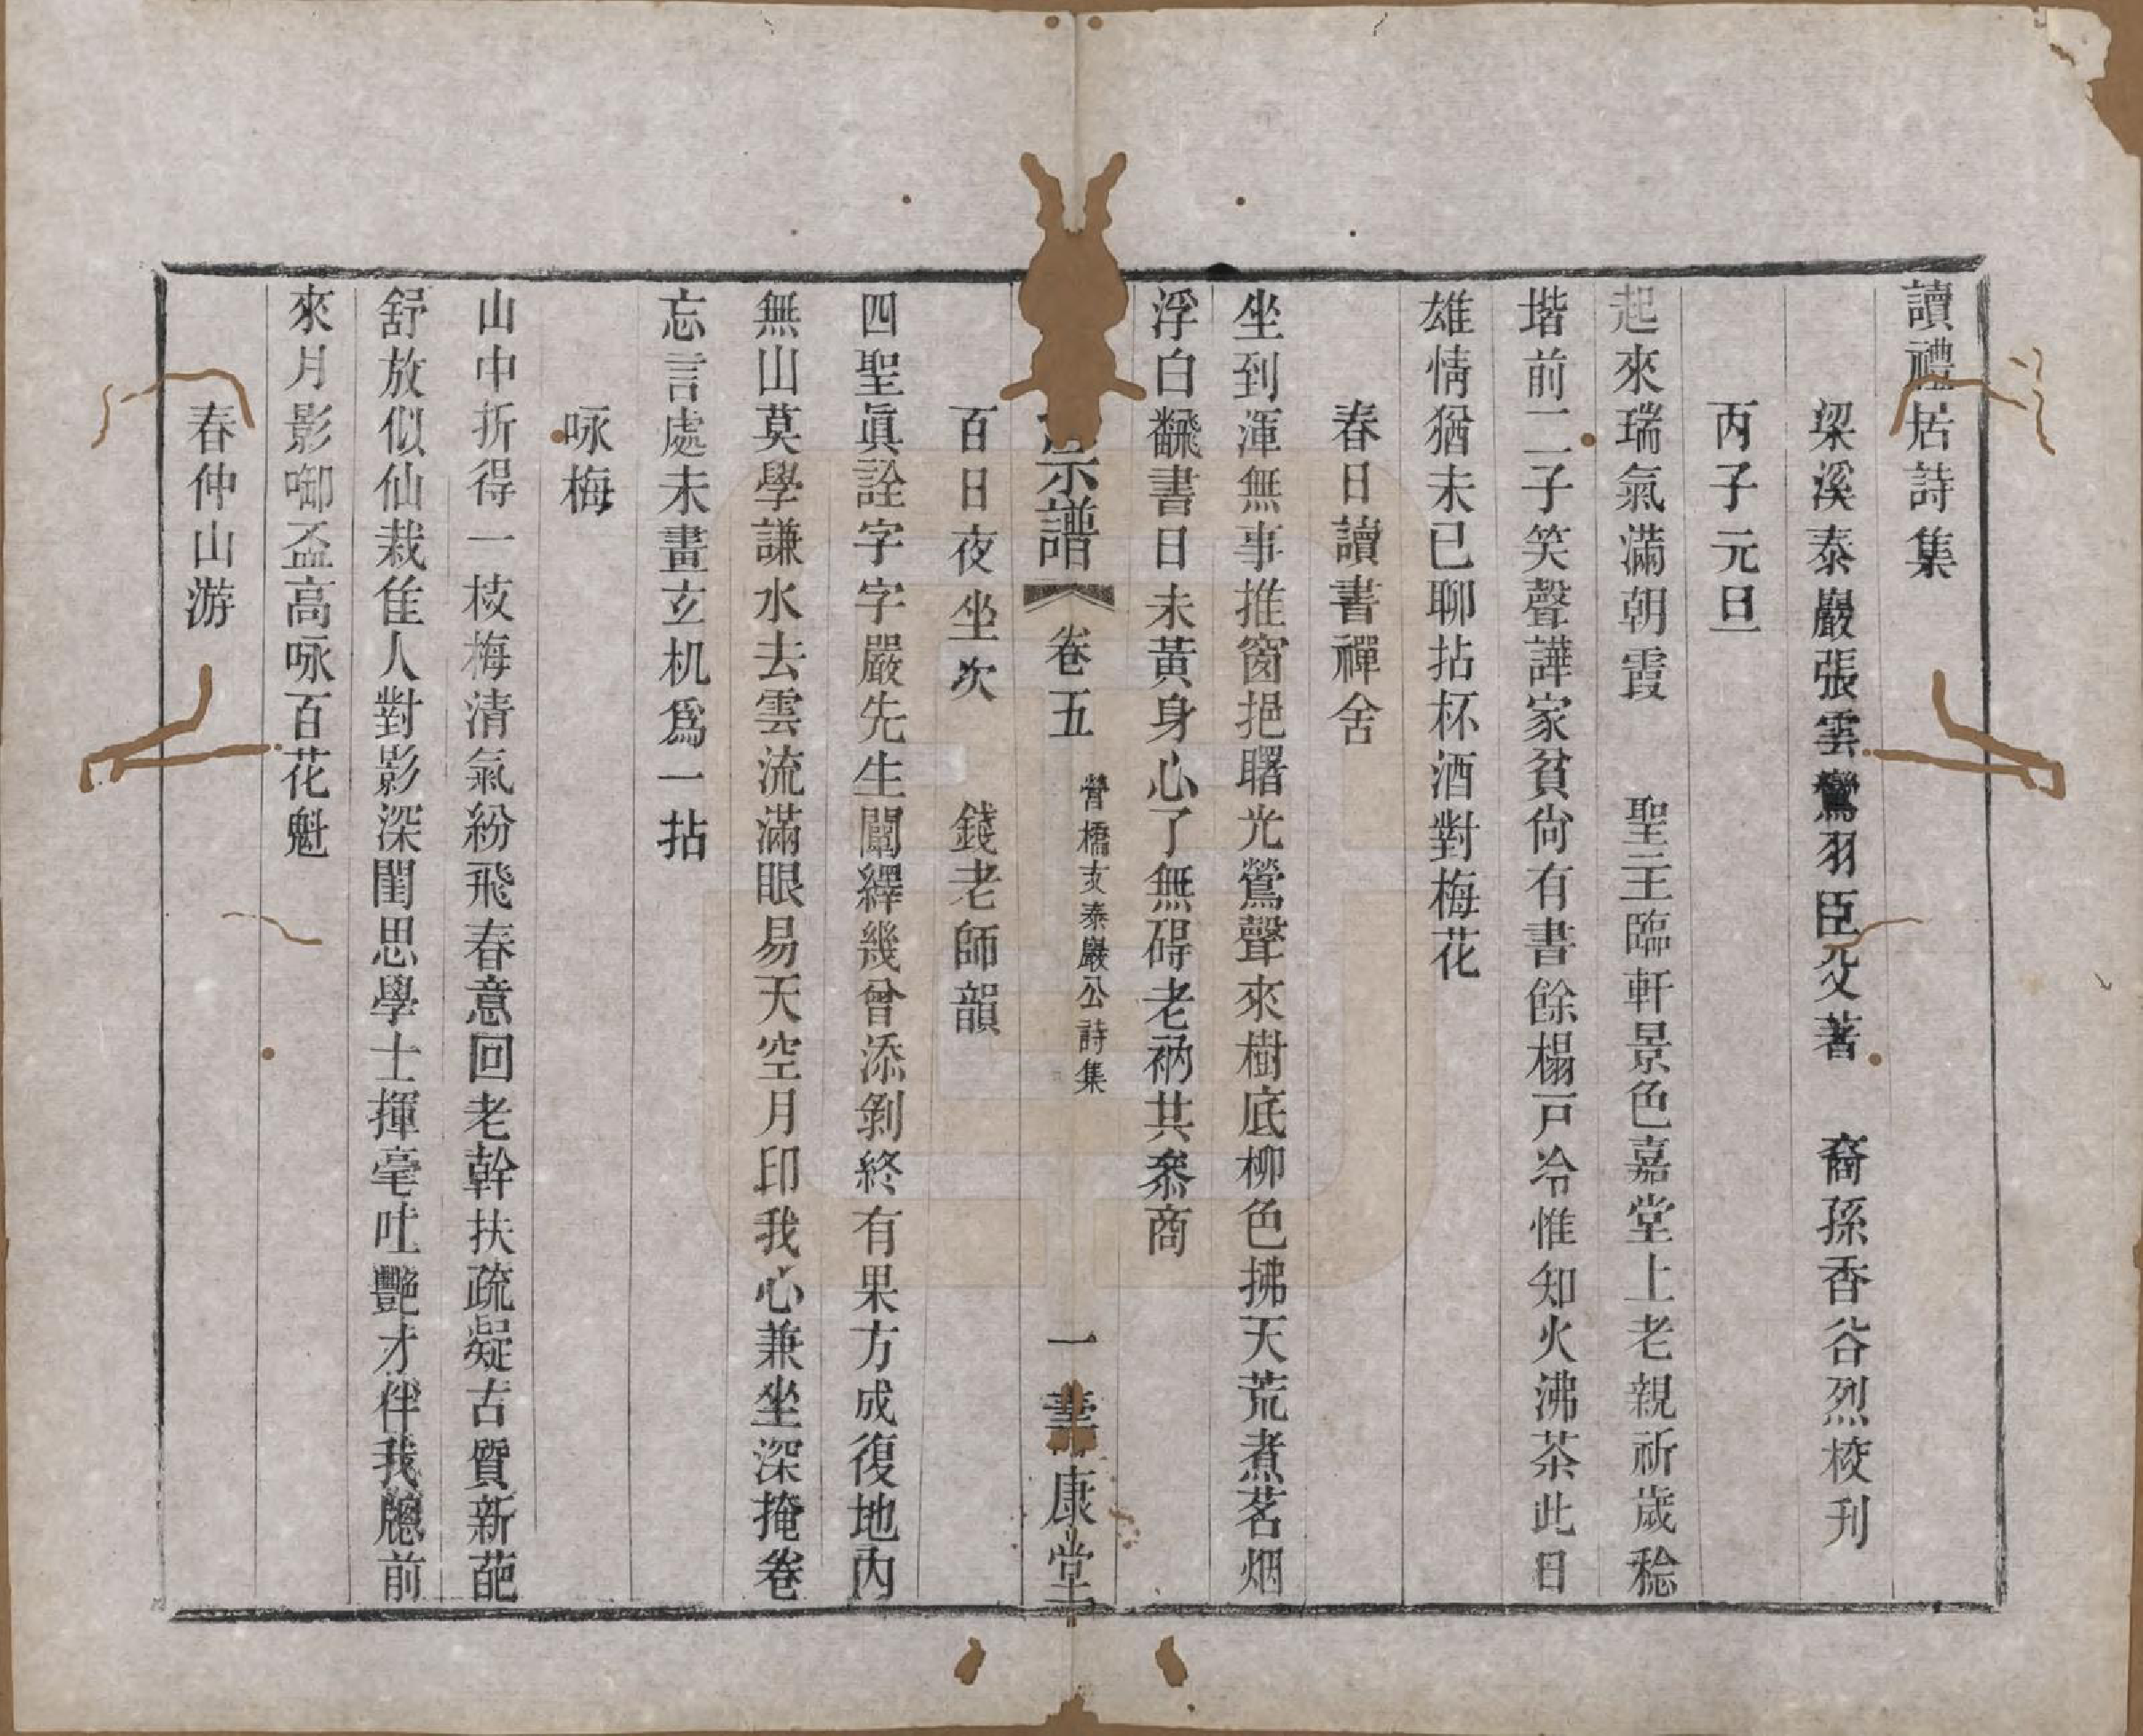 讀禮居詩集
梁溪泰巖張雲鸞羽臣父著　裔孫香谷烈校刊
丙子元旦
起來瑞氣滿朝霞　聖主臨軒景色嘉堂上老親祈歲稔
堦前二子笑聲譁家貧尙有書餘榻戸冷惟知火沸茶此日
雄情猶未已聊拈杯酒對梅花
春日讀書禪舍
坐到渾無事推窗挹曙光鶯聲來樹底柳色拂天荒煮茗烟
浮白飜書日未黃身心了無碍老衲共叅商
宗譜　卷五　營橋支泰巖公詩集　一　壽康堂
百日夜坐次　錢老師韻
四聖眞詮字字嚴先生闡繹幾曾添剝終有果方成復地內
無山莫學謙水去雲流滿眼易天空月印我心兼坐深掩卷
忘言處未畫玄机爲一拈
咏梅
山中折得一枝梅清氣紛飛春意回老幹扶疏凝古質新葩
舒放似仙栽隹人對影深閨思學士揮毫吐艷才伴我牕前
來月影啣盃高咏百花魁
春仲山游